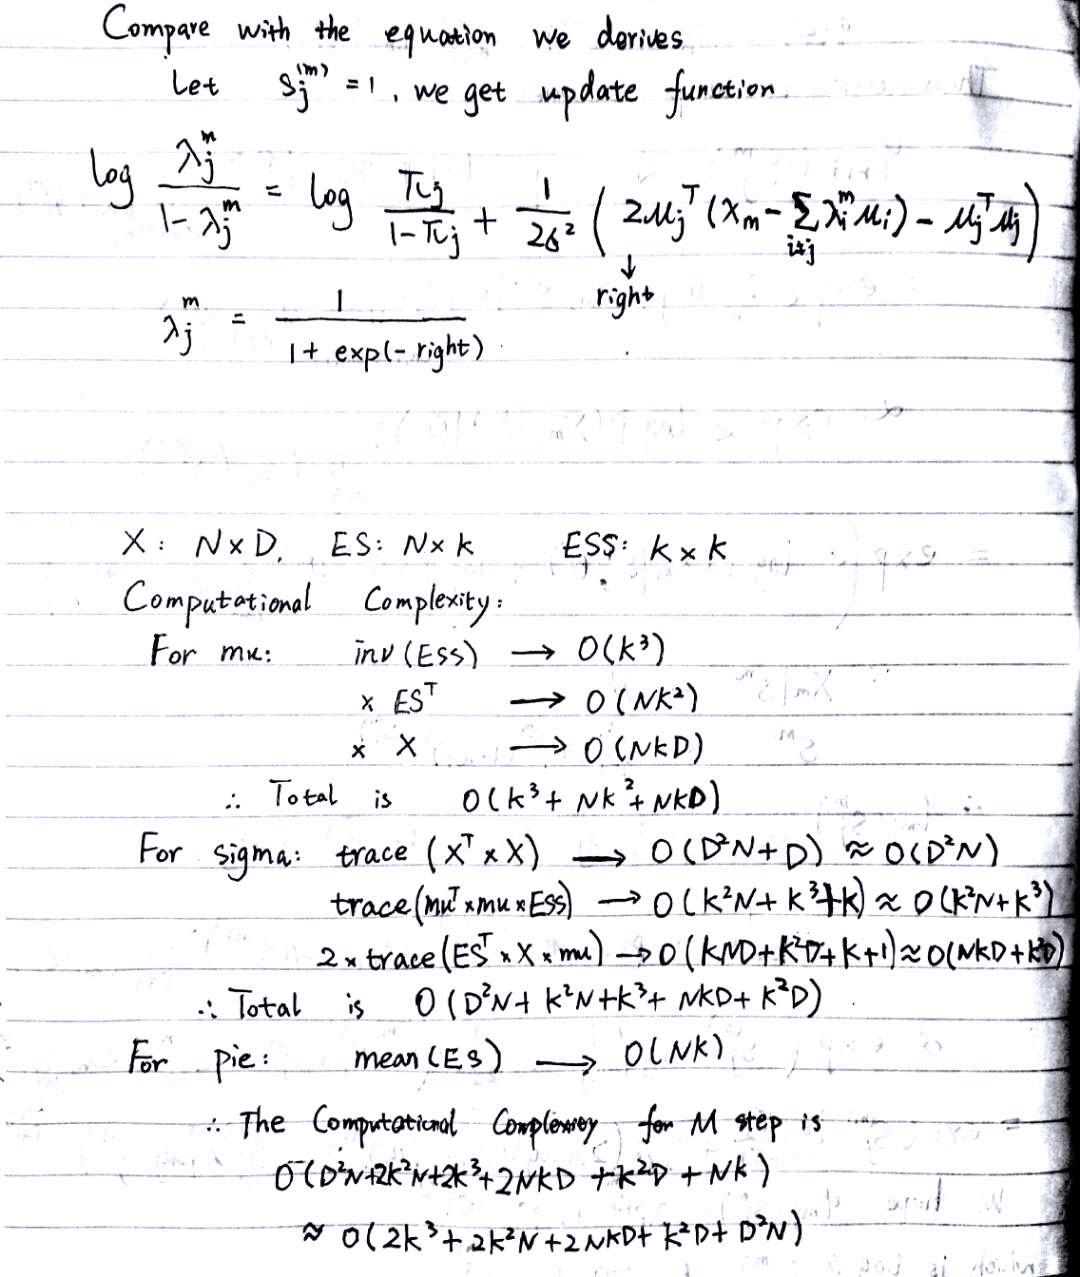 Compare with the equation we derives
Let S_j^(m) = 1, we get update function.
log λ_j^m / (1-λ_j^m) = log π_j / (1-π_j) + 1/(2σ²) ( 2μ_j^T (x_m - Σ_{i≠j} λ_i^m μ_i) - μ_j^T μ_j )
↓
right
λ_j^m = 1 / (1 + exp(-right))
X: N×D, ES: N×k ESS: k×k
Computational Complexity:
For mu: inv(ESS) → O(k³)
× ES^T → O(Nk²)
× X → O(NkD)
∴ Total is O(k³ + Nk² + NkD)
For sigma: trace (X^T × X) → O(D²N+D) ≈ O(D²N)
trace(mu^T×mu×ESS) → O(k²N + k³+k) ≈ O(k²N+k³)
2×trace(ES^T × X × mu) → O(kND+k²D+k+1) ≈ O(NkD+k²D)
∴ Total is O(D²N + k²N + k³ + NkD + k²D)
For pie: mean(ES) → O(Nk)
∴ The Computational for M step is
O(D²N+2k²N+2k³+2NkD + k²D + Nk)
≈ O(2k³ + 2k²N + 2NkD + k²D + D²N)